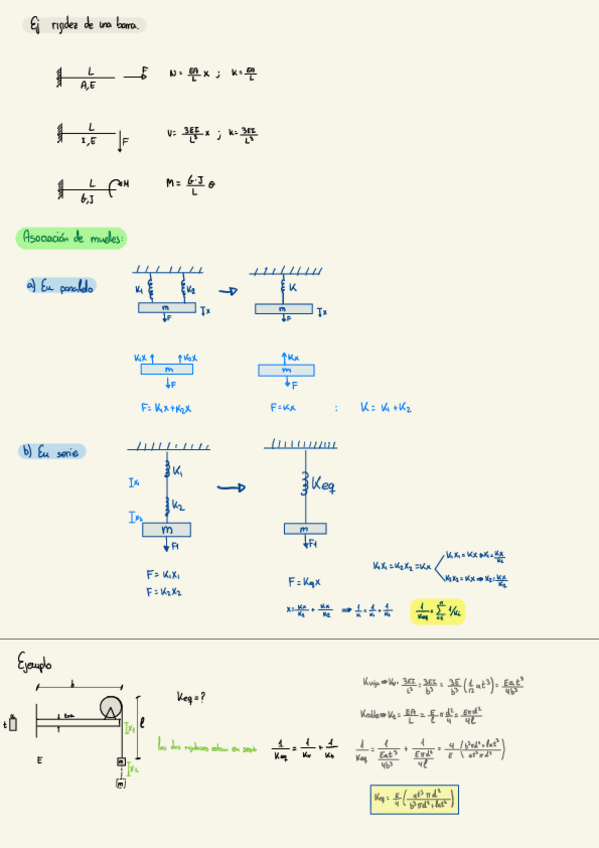 Ej rigidez de una barra.
L F N = EA/L x ; K = EA/L
A, E
L V = 3EI/L³ x ; K = 3EI/L³
I, E F
L M M = G·J/L θ
G, J
Asociación de muelles:
a) En paralelo
K₁ K₂ K
m x m x
F F
K₁x K₂x Kx
m m
F F
F = K₁x + K₂x F = Kx : K = K₁ + K₂
b) En serie
x₁ K₁ Keq
x₂ K₂
m m
F₁ F₁
F = K₁x₁
F = K₂x₂
F = Keq x
K₁x₁ = K₂x₂ = Kx
K₁x₁ = Kx ⇒ x₁ = Kx/K₁
K₂x₂ = Kx ⇒ x₂ = Kx/K₂
x = Kx/K₁ + Kx/K₂ ⇒ 1/K = 1/K₁ + 1/K₂
1/Keq = Σ 1/Ki
Ejemplo
b
Keq = ?
t a l
x₁
E
m x₂
m
Las dos rigideces estan en serie
1/Keq = 1/Kv + 1/Kt
Kviga ⇒ Kv = 3EI/L³ = 3EI/b³ = 3E/b³ (1/12 a t³) = Eat³/4b³
Kcable ⇒ Kt = EA/L = E/l π d²/4 = Eπd²/4l
1/Keq = 1/(Eat³/4b³) + 1/(Eπd²/4l) = 4/E (b³πd² + lat³ / at³πd²)
Keq = E/4 (at³πd² / b³πd² + lat³)